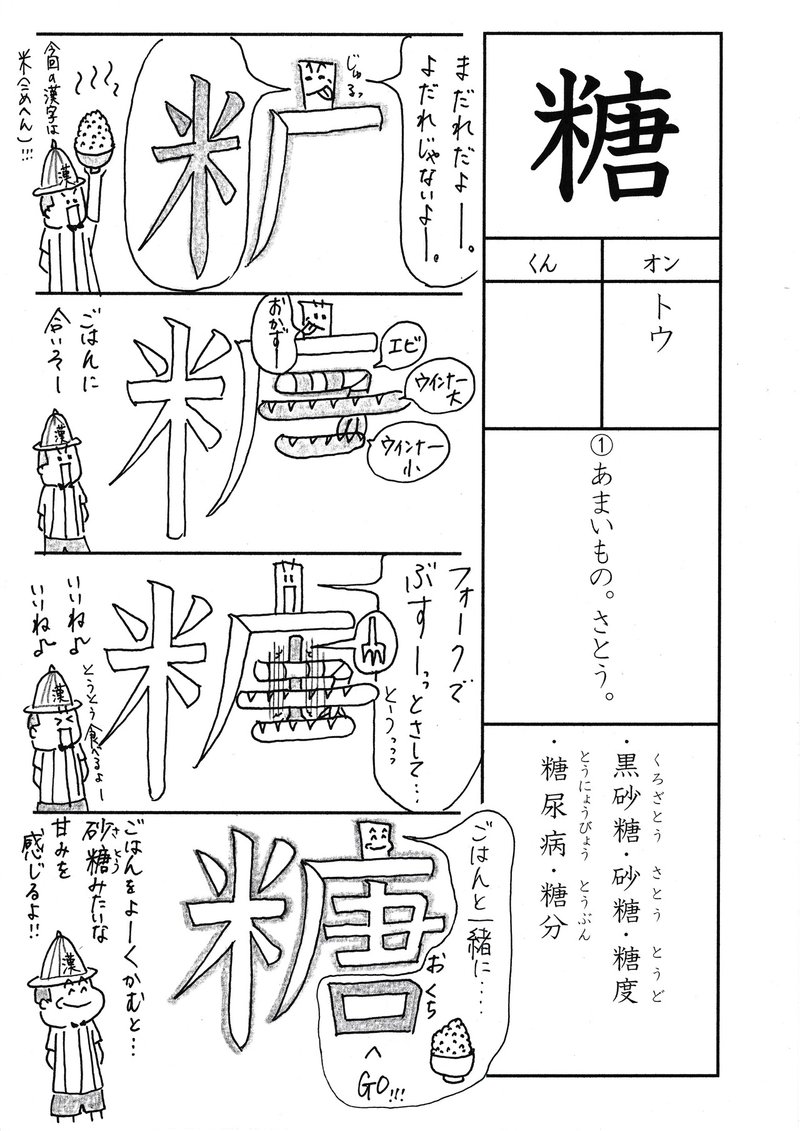 糖
オン
くん
トウ
①あまいもの。さとう。
くろざとう さとう とうど
・黒砂糖・砂糖・糖度
とうにょうびょう とうぶん
・糖尿病・糖分
まだれだよー。
よだれじゃないよー。
じゅるっ
米
今回の漢字は
米(こめへん)!!!
漢
おかずー
エビ
ウインナー
大
ウインナー
小
米
ごはんに
合いそー
漢
フォークで
ぶすーっとさして…
とーうっっっ
米
いいね♪
いいね♪
とうとう食べるよー
漢
ごはんと一緒に‥‥
おくち
へ
GO!!!
糖
ごはんをよーくかむと…
さとう
砂糖みたいな
甘みを
感じるよ!!
漢